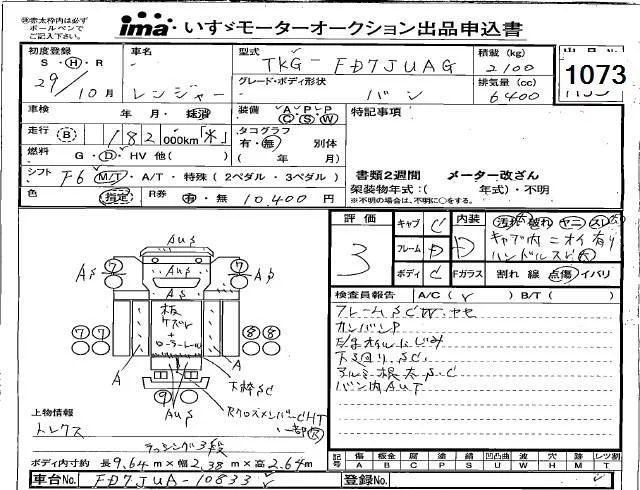 ※赤太枠内は必ず
ボールペンで
ご記入下さい。
ima いすゞモーターオークション出品申込書
初度登録 S・H・R 29/10月
車名 レンジャー
型式 TKG-FD7JUAG
グレード・ボディ形状 バン
積載 (kg) 2100
排気量 (cc) 6400
出品No
1073
車検 年 月・抹消
装備 A P P C S W
特記事項
走行 B 182 000km「km」
タコグラフ 有・無 別体
( 年 月)
燃料 G・D・HV 他( )
シフト F6 M/T・A/T・特殊 (2ペダル・3ペダル)
書類2週間 メーター改ざん
架装物年式:( 年式)・不明
※不明の場合は、不明に○をする。
色 指定 R券 有・無 10,400円
評価 3
キャブ C
フレーム D
ボディ C
内装 D
Fガラス
汚れ 破れ ヤニ スレ
キャブ内ニオイ有り
ハンドルスレ大
割れ 線 点傷 イバリ
検査員報告 A/C( ✓ ) B/T( )
フレームSCW.ヤセ
カンバンP
下S回りSC,
アルミ根太S.C
バン内AUT
AuS
AS 7 7 AP
AuS
AS
板
ケズレ
+
ローラーレール
7 7 8 8
A A
下枠SC
9
AuS
RクロスメンバーCHT
上物情報
トレクス
ラッシング3段
ボディ内寸約 長9.64m×幅2.38m×高2.64m
記号 傷 板金 腐 塗 錆 凹凸曲 波 穴 跡 レツ割
A B C P S U W H M T
車台No. FD7JUA-10833
登録No.